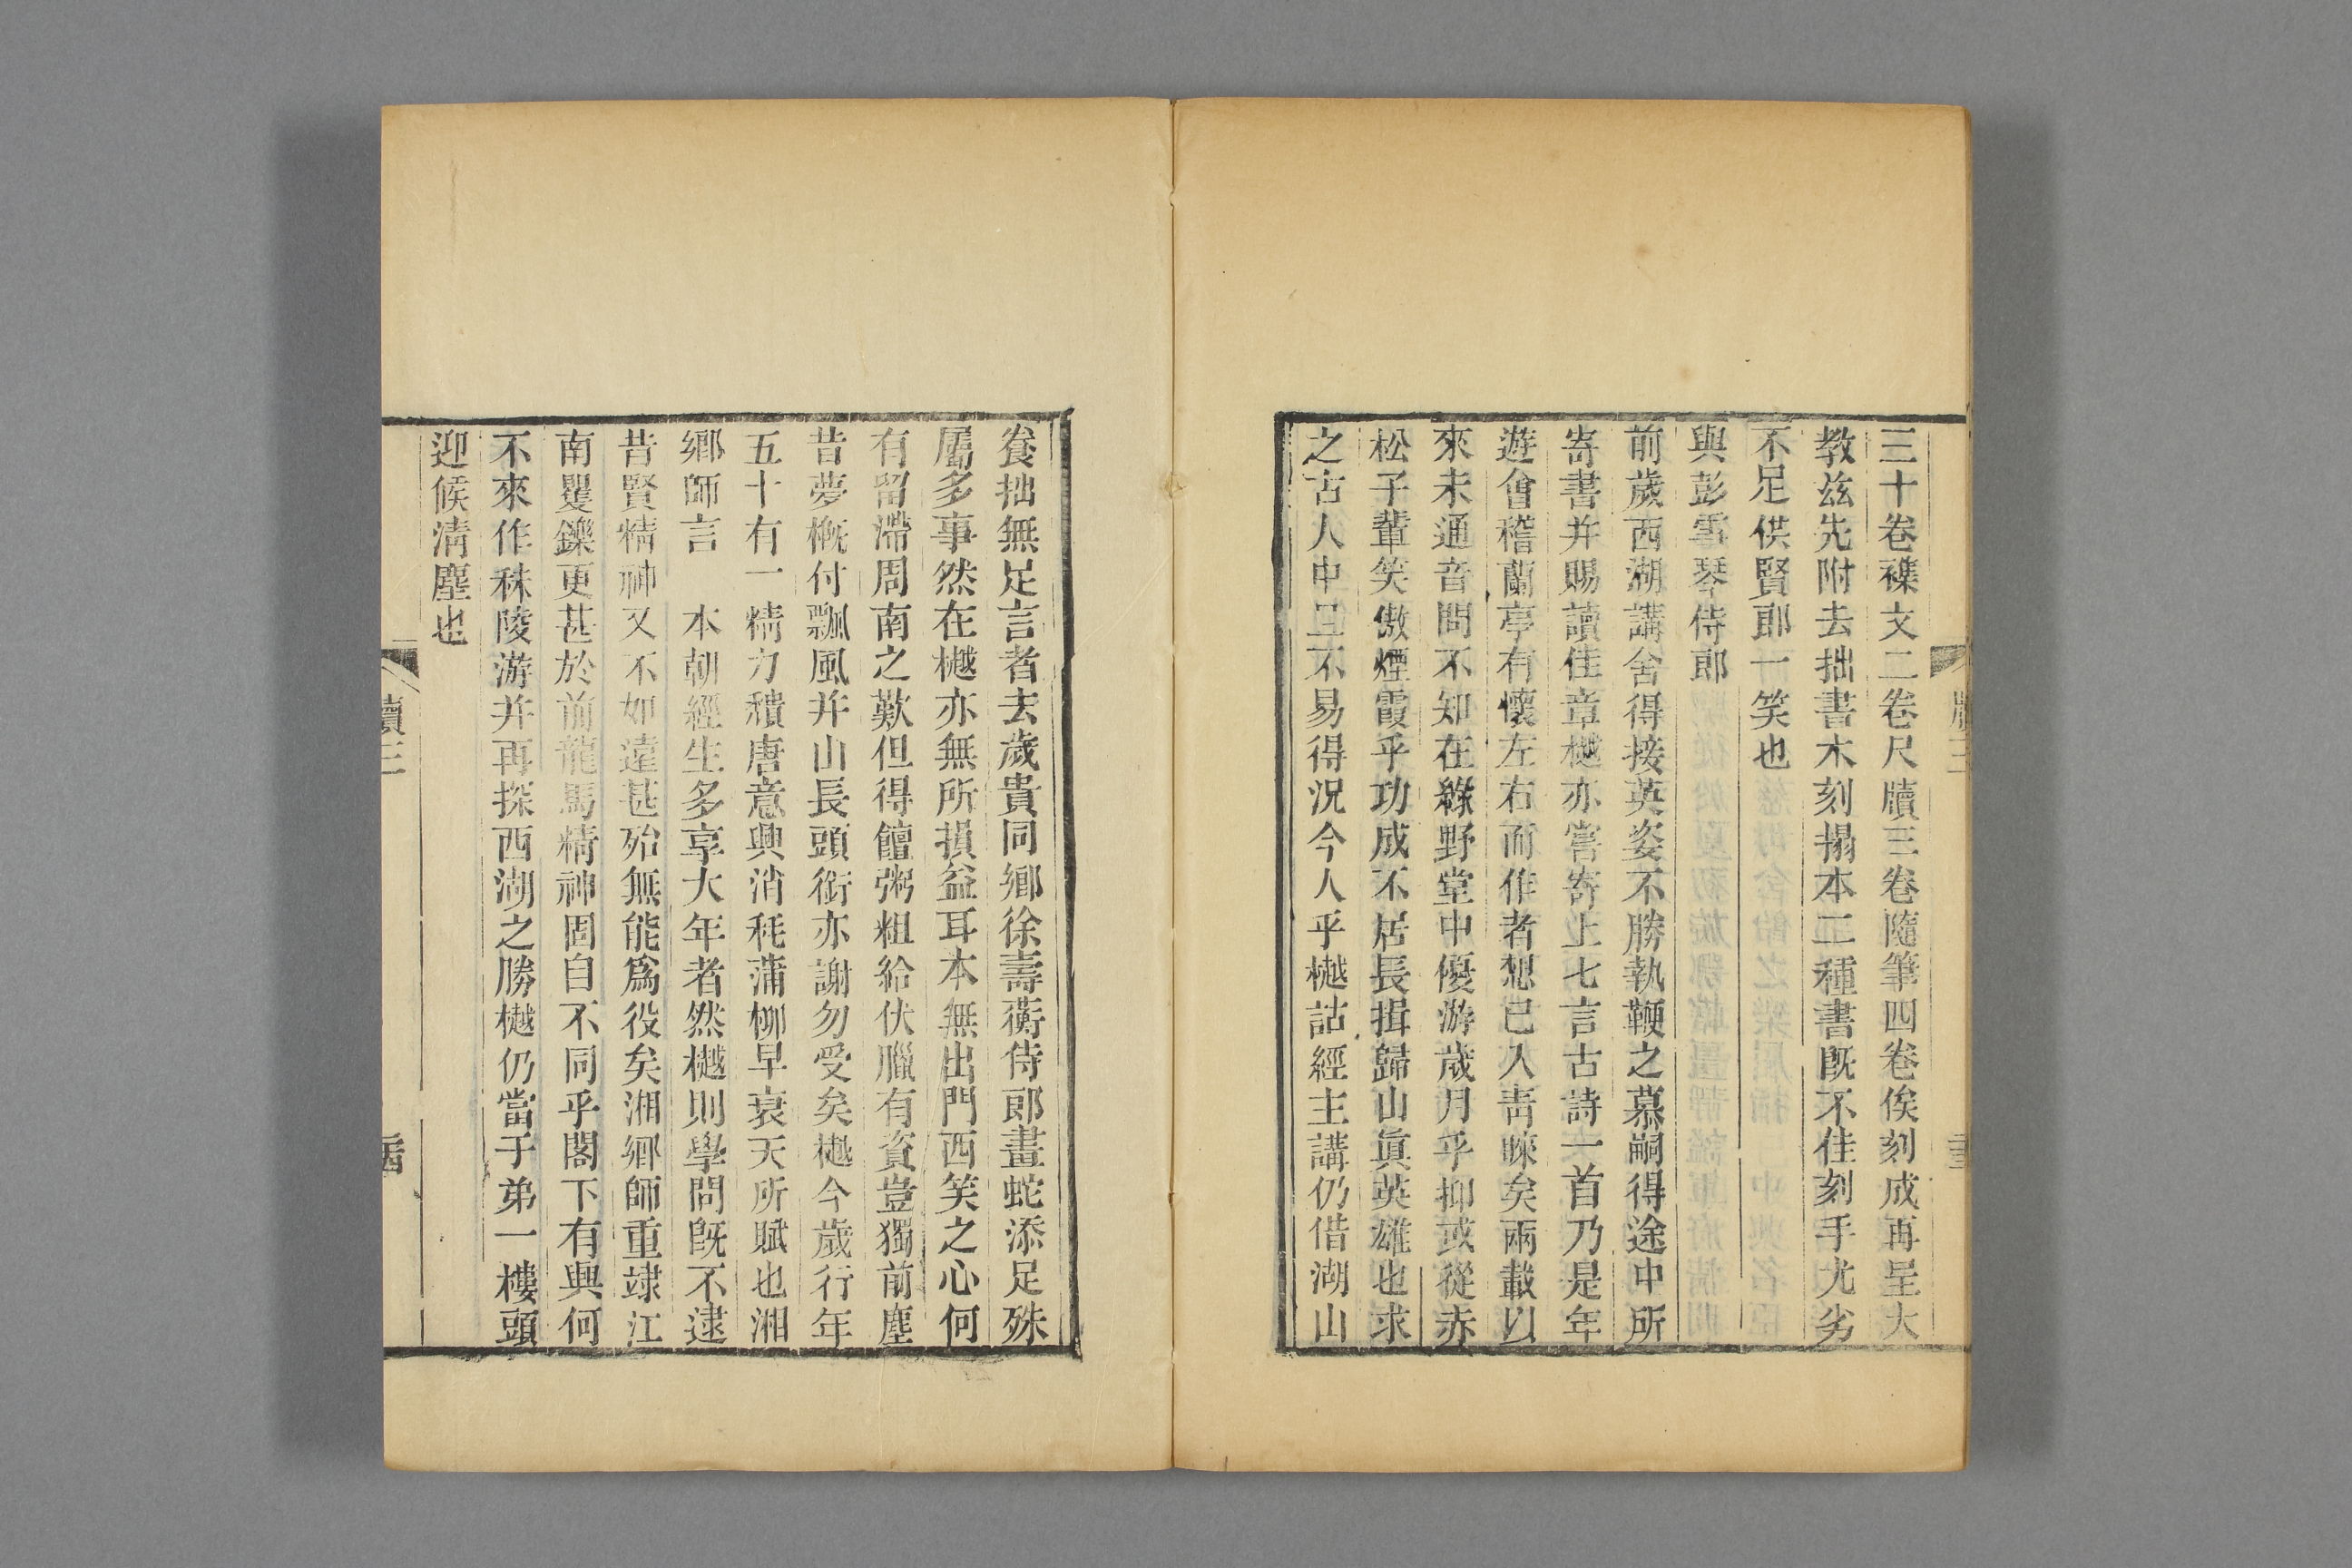 三十卷襍文二卷尺牘三卷隨筆四卷俟刻成再呈大
教茲先附去拙書木刻搨本二種書旣不佳刻手尤劣
不足供賢郎一笑也
與彭雪琴侍郎
前歲西湖講舍得接英姿不勝執鞭之慕嗣得途中所
寄書并賜讀佳章樾亦嘗寄上七言古詩一首乃是年
遊會稽蘭亭有懷左右而作者想已入青睞矣兩載以
來未通音問不知在綠野堂中優游歲月乎抑或從赤
松子輩笑傲煙霞乎功成不居長揖歸山眞英雄也求
之古人中且不易得況今人乎樾詁經主講仍借湖山
養拙無足言者去歲貴同鄉徐壽蘅侍郎畫蛇添足殊
屬多事然在樾亦無所損益耳本無出門西笑之心何
有留滯周南之歎但得饘粥粗給伏臘有資豈獨前塵
昔夢槪付飄風并山長頭銜亦謝勿受矣樾今歲行年
五十有一精力穨唐意興消耗蒲柳早衰天所賦也湘
鄉師言 本朝經生多享大年者然樾則學問旣不逮
昔賢精神又不如遠甚殆無能爲役矣湘鄉師重竦江
南矍鑠更甚於前龍馬精神固自不同乎閣下有興何
不來作秣陵游并再探西湖之勝樾仍當于弟一樓頭
迎候清塵也
牘三